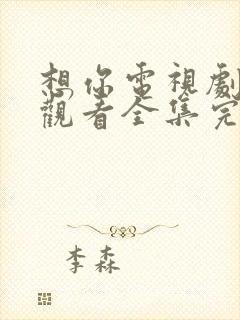 想你電視劇
觀看全集完
李森